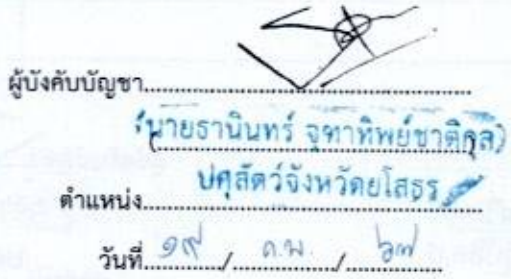 ผู้บังคับบัญชา
(นายธานินทร์ จุฑาทิพย์ชาติกุล)
ตำแหน่ง ปศุสัตว์จังหวัดยโสธร
วันที่ ๑๙ / ก.พ. / ๖๗